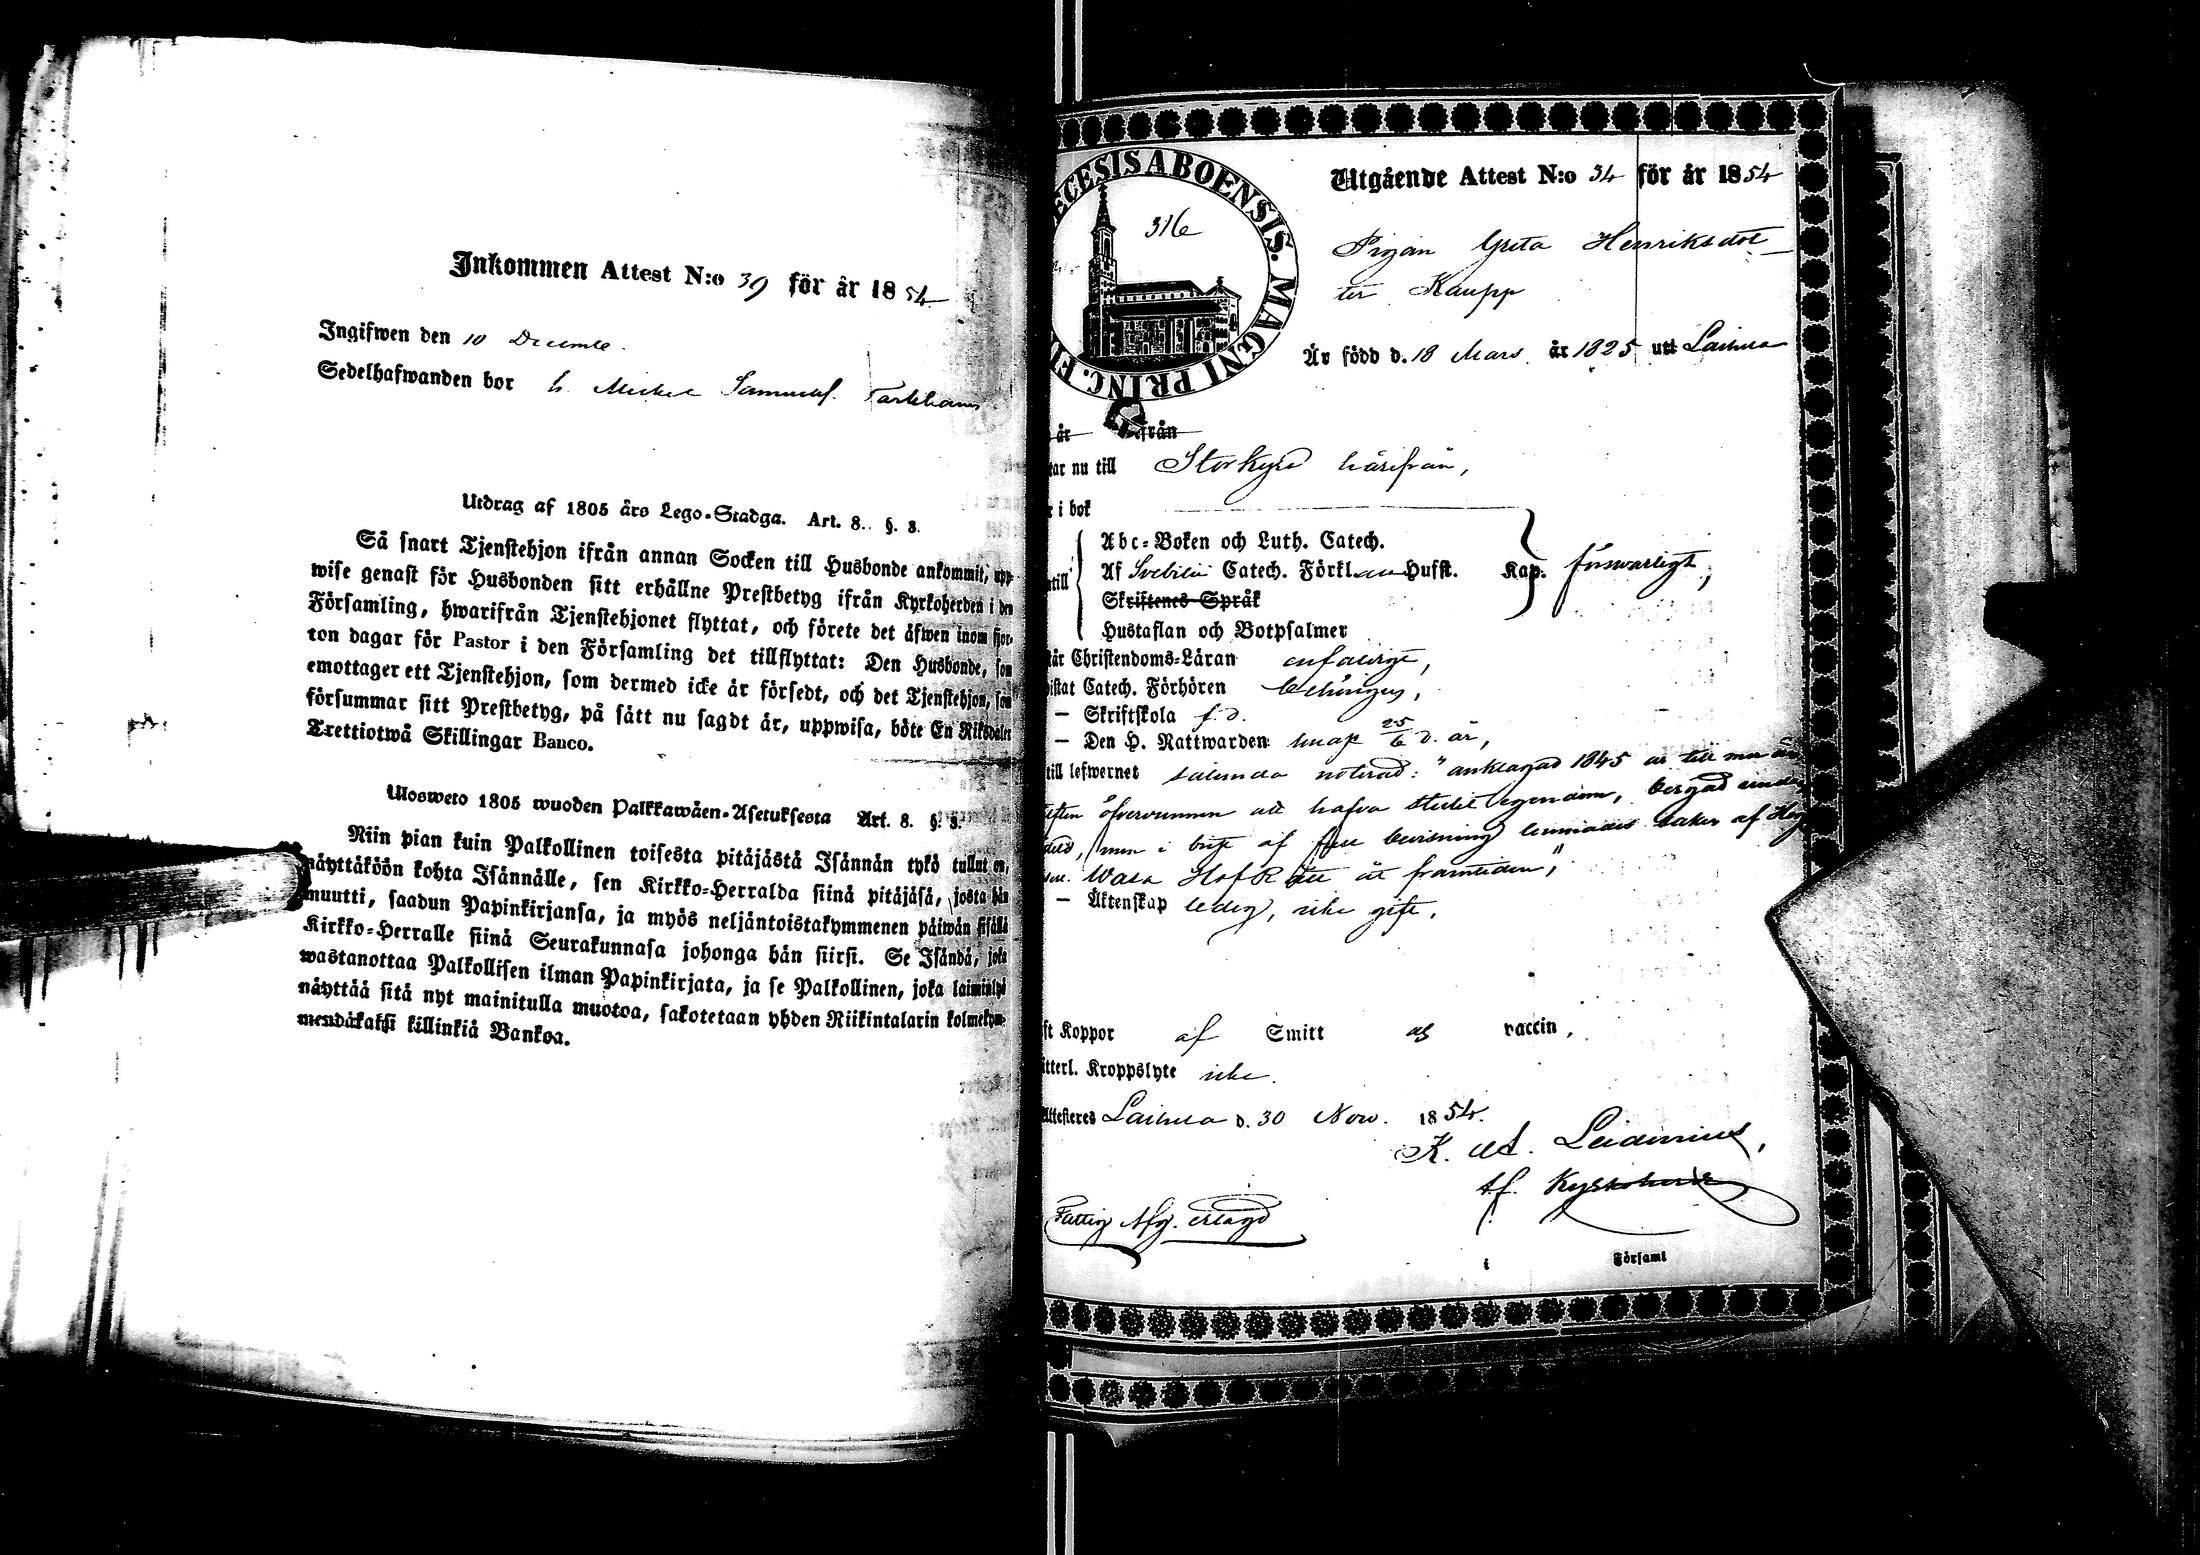 Inkommen Attest N:o 39 för år 1854
Ingifwen den 10 Decembr.
Sedelhafwanden bor h. Mickel Samuelss.
Utdrag af 1805 års Lego-Stadga. Art. 8. §. 8.
Så snart Tjenstehjon ifrån annan Socken till Husbonde ankommit, upp-
wise genast för Husbonden sitt erhållne Prestbetyg ifrån Kyrkoherden i den
Församling, hwarifrån Tjenstehjonet flyttat, och förete det äfwen inom fjor-
ton dagar för Pastor i den Församling det tillflyttat: Den Husbonde, som
emottager ett Tjenstehjon, som dermed icke är försedt, och det Tjenstehjon, som
försummar sitt Prestbetyg, på sätt nu sagdt är, uppwisa, böte En Riksdaler
Trettiotwå Skillingar Banco.
Ulosweto 1805 wuoden Palkkawäen-Asetuksesta Art. 8. §. 8.
Niin pian kuin Palkollinen toisesta pitäjästä Isännän tykö tullut on,
näyttäköön kohta Isännälle, sen Kirkko-Herralda siinä pitäjäsä, josta hän
muutti, saadun Papinkirjansa, ja myös neljäntoistakymmenen päiwän sisällä
Kirkko-Herralle siinä Seurakunnasa johonga hän siirsi. Se Isändä, joka
wastanottaa Palkollisen ilman Papinkirjata, ja se Palkollinen, joka laiminlyö
näyttää sitä nyt mainitulla muotoa, sakotetaan yhden Riikintalarin kolmekym-
mendäkaksi killinkiä Bankoa.
ECESIS ABOENSIS. MAGNI PRINC. FI
316
Utgående Attest N:o 34 för år 1854
Pigan Greta Henriksdot-
ter Kaupp
Är född d. 18 Mars år 1825 uti Laihela
är från
tar nu till Storkyro härifrån,
r i bok
Abc-Boken och Luth. Catech.
Af Svebilii Catech. Förkl. Husst. Kap. försvarligt,
ntill
Skriftenes Språk
Hustaflan och Botpsalmer
tår Christendoms-Läran enfaldigt,
wistat Catech. Förhören behörigen,
— Skriftskola f. d.
— Den H. Nattwarden 25/6 d. är,
till lefwernet sålunda noterad: "anklagad 1845 at till
öfvervunnen att hafva stulit egendom,
men i brist af full bevisning lemnades saken af
Wasa HofRätt åt framtiden,"
— Äktenskap ledig, icke gift.
ft Koppor af Smitt af vaccin,
itterl. Kroppslyte icke.
Attesteres Laihela d. 30 Nov. 1854.
K.
tf. Kyrkoherde
Fattig Afg. erlagd
i Församl